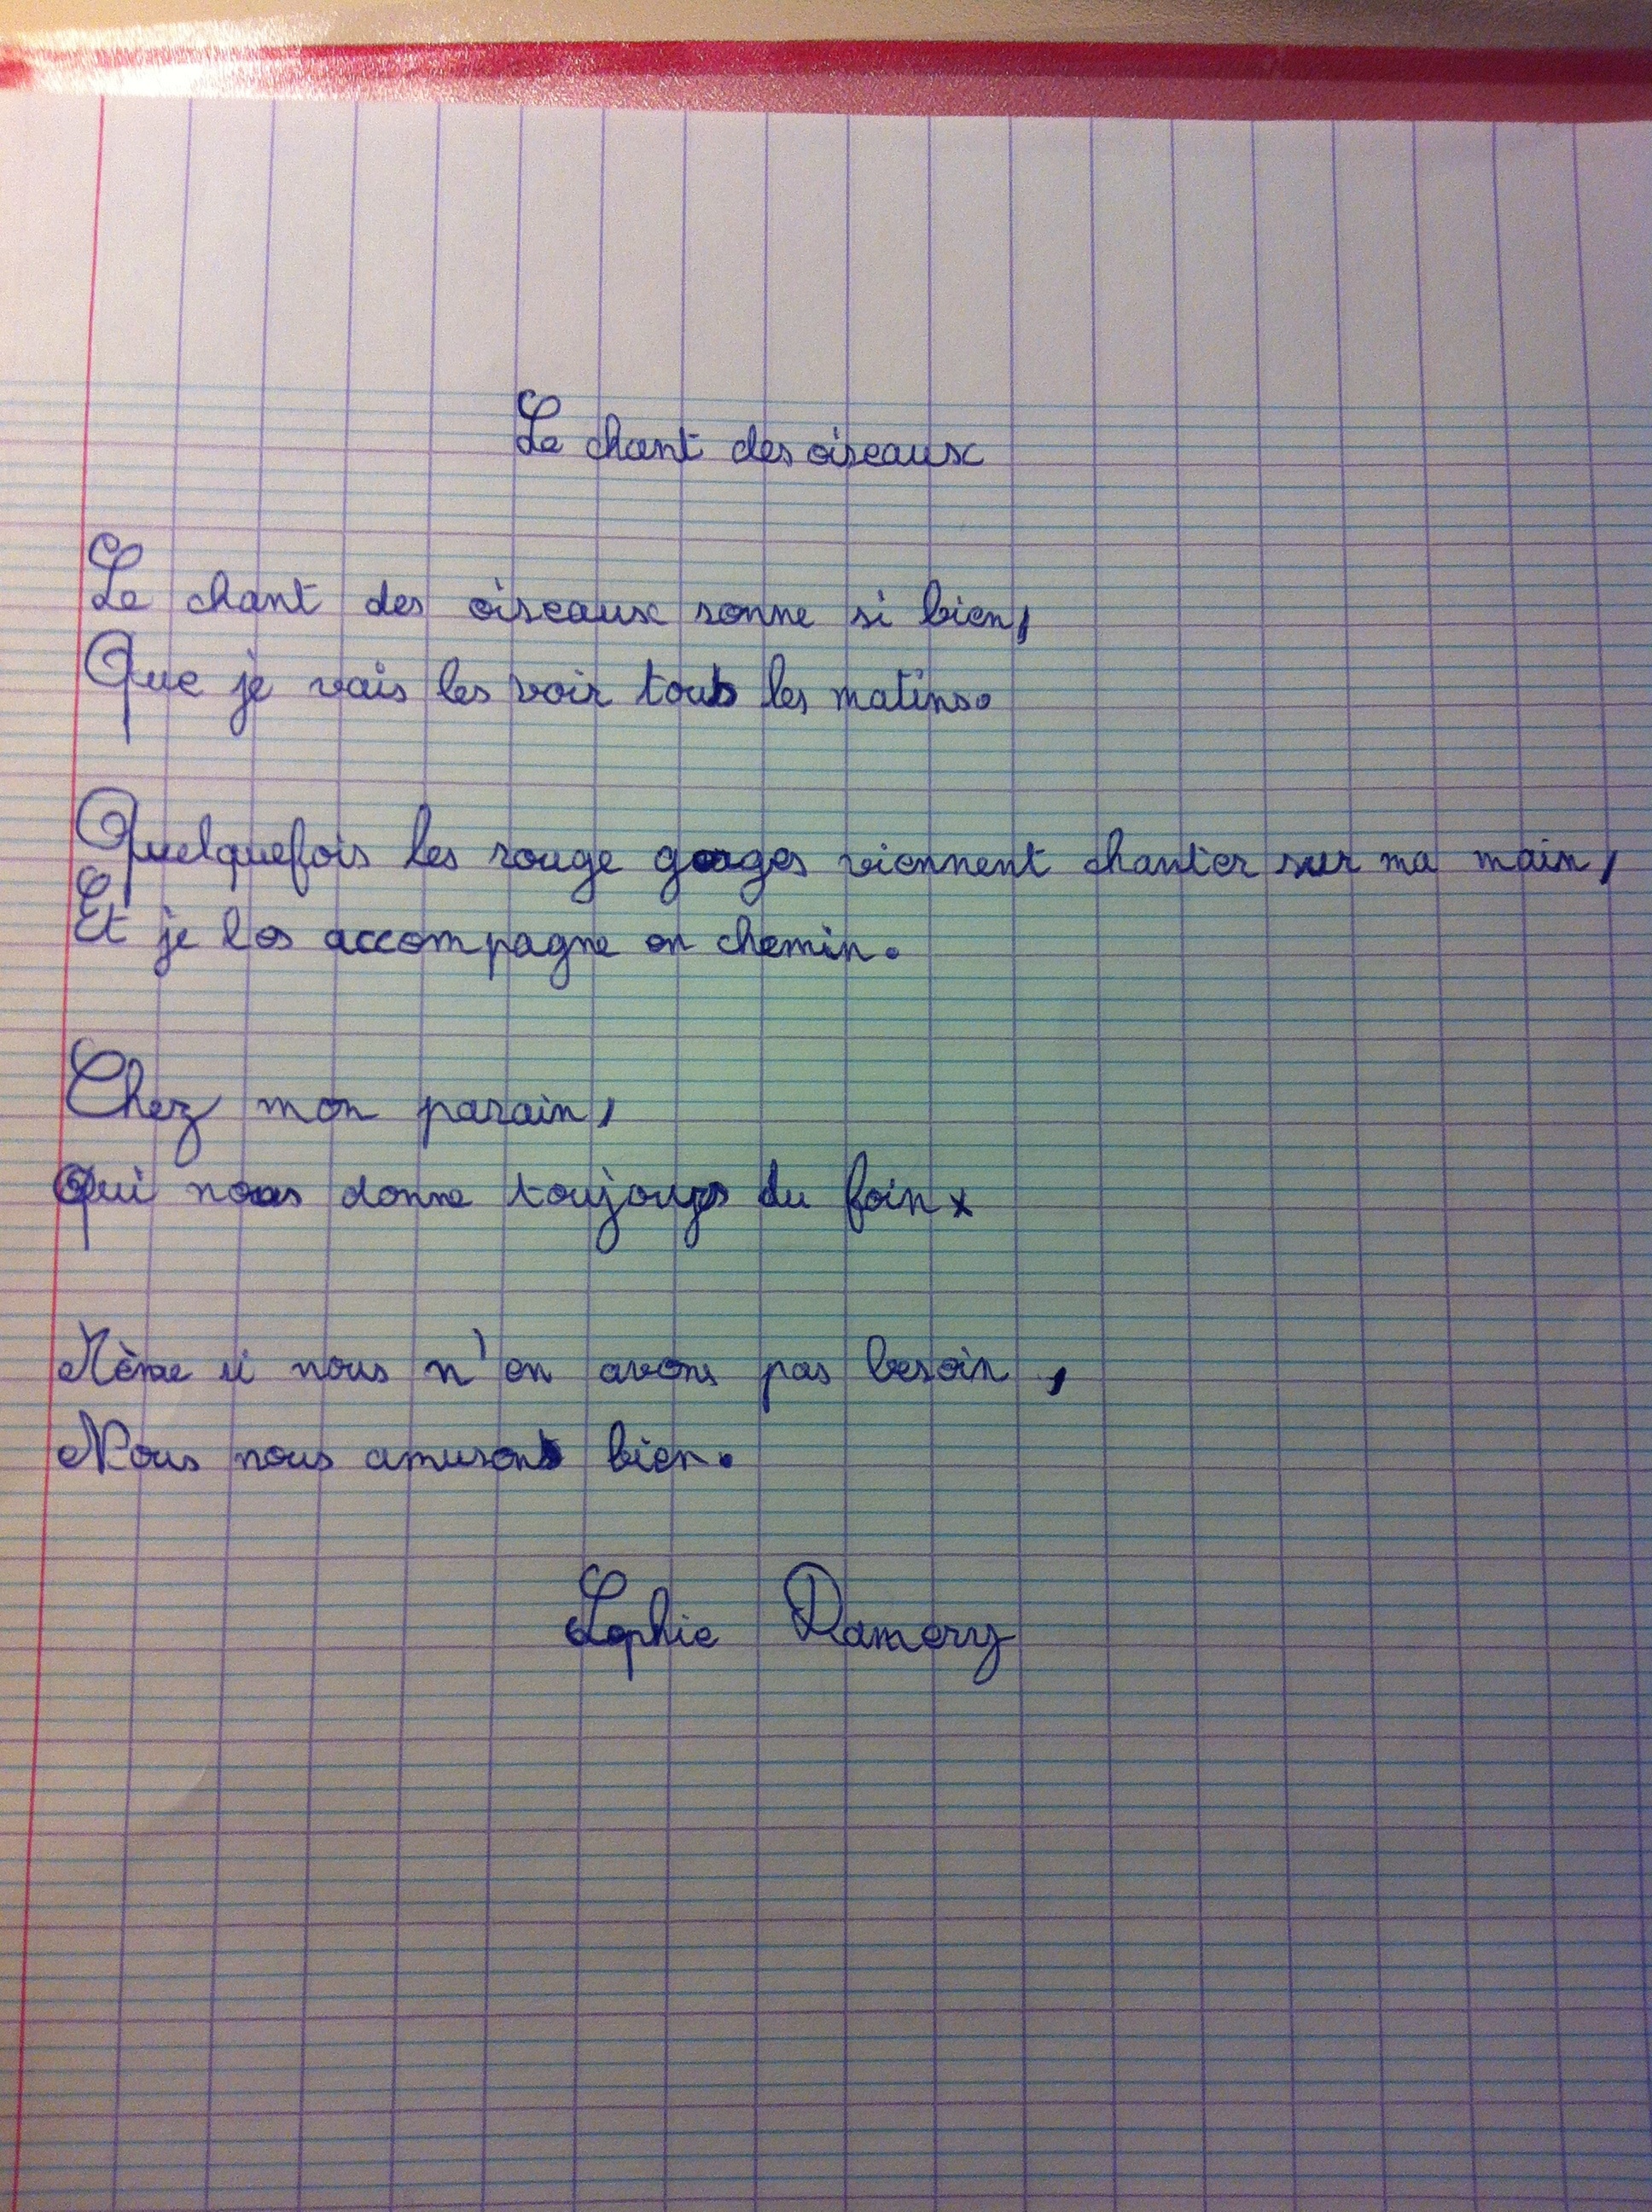 Le chant des oiseaux
Le chant des oiseaux sonne si bien,
Que je vais les voir tous les matins.
Quelquefois les rouge gorges viennent chanter sur ma main,
Et je les accompagne en chemin.
Chez mon parain,
Qui nous donne toujours du foin.
Même si nous n'en avons pas besoin,
Nous nous amusons bien.
Sophie Damery